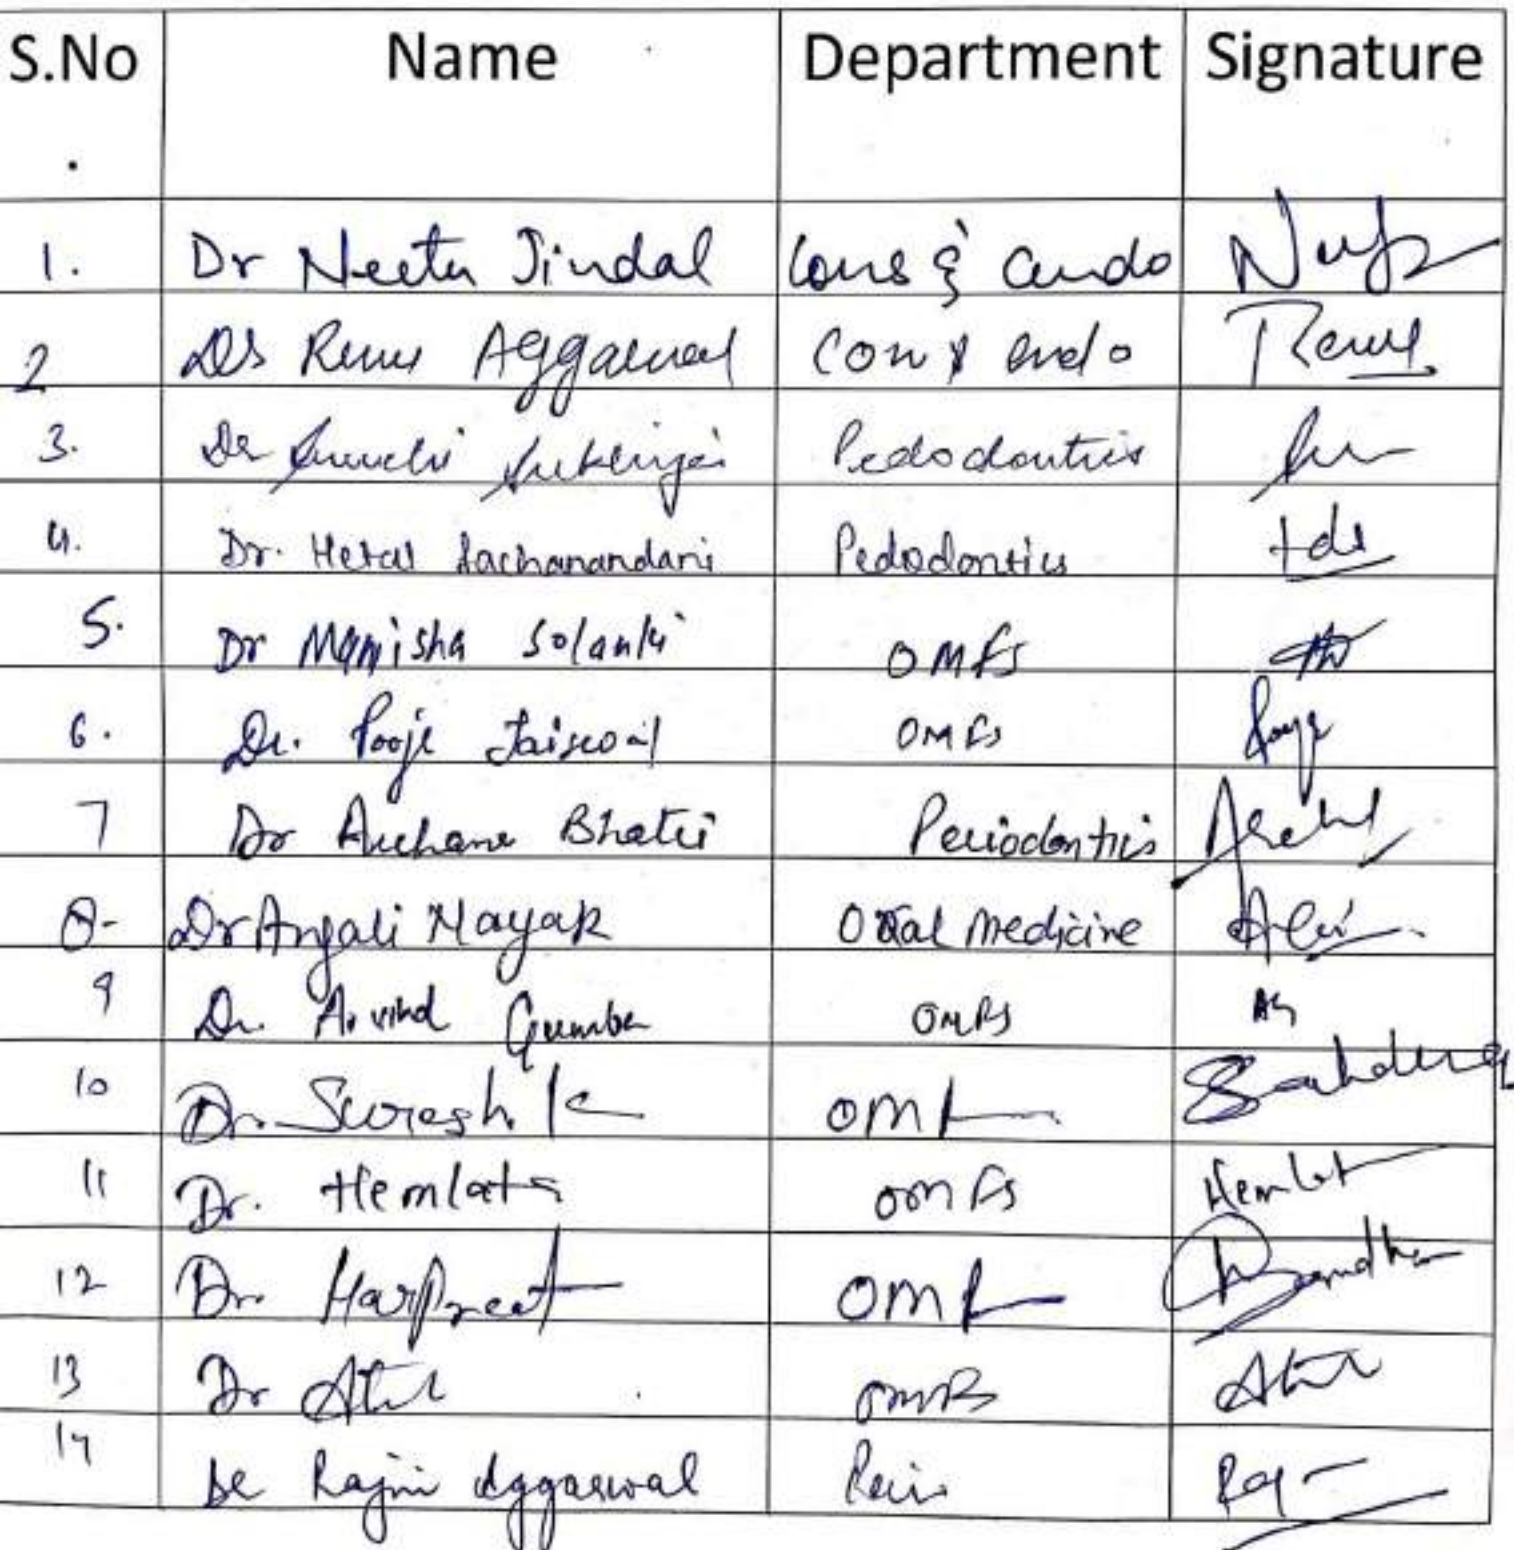 S.No Name Department Signature
.
1. Dr Neeta Jindal Cons & endo
2 Dr Renu Aggarwal Con & endo Renu
3. Dr Pedodontics
4. Dr. Hetal Lachanandani Pedodontics
5. Dr Manisha Solanki OMFS
6. Dr. Pooja Jaiswal OMFS Pooja
7 Dr Archana Bhati Periodontics
8- Dr Anjali Nayak Oral Medicine
9 Dr. Arvind Gumber OMFS AG
10 Dr. Suresh K OMF
11 Dr. Hemlata OMFS Hemlat
12 Dr. Harpreet OMF
13 Dr Atul OMFS Atul
14 Dr Rajni Aggarwal Raj